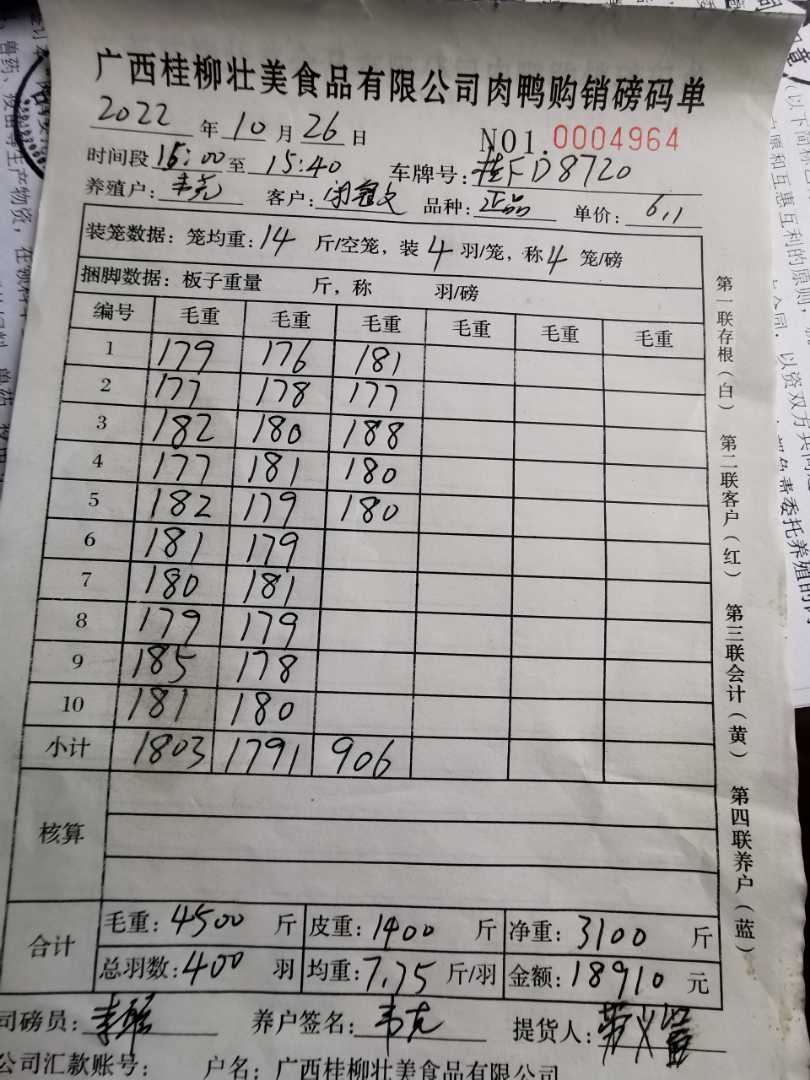 广西桂柳壮美食品有限公司肉鸭购销磅码单
2022年10月26日 NO1.0004964
时间段15:00至15:40 车牌号:桂FD8720
养殖户: 客户: 品种:正品 单价:6.1
装笼数据:笼均重:14斤/空笼,装4羽/笼,称4笼/磅
捆脚数据:板子重量 斤,称 羽/磅
编号 毛重 毛重 毛重 毛重 毛重 毛重
1 179 176 181
2 177 178 177
3 182 180 188
4 177 181 180
5 182 179 180
6 181 179
7 180 181
8 179 179
9 185 178
10 181 180
小计 1803 1791 906
核算
合计
毛重:4500斤 皮重:1400斤 净重:3100斤
总羽数:400羽 均重:7.75斤/羽 金额:18910元
司磅员: 养户签名: 提货人:
公司汇款账号: 户名:广西桂柳壮美食品有限公司
第一联存根(白) 第二联客户(红) 第三联会计(黄) 第四联养户(蓝)